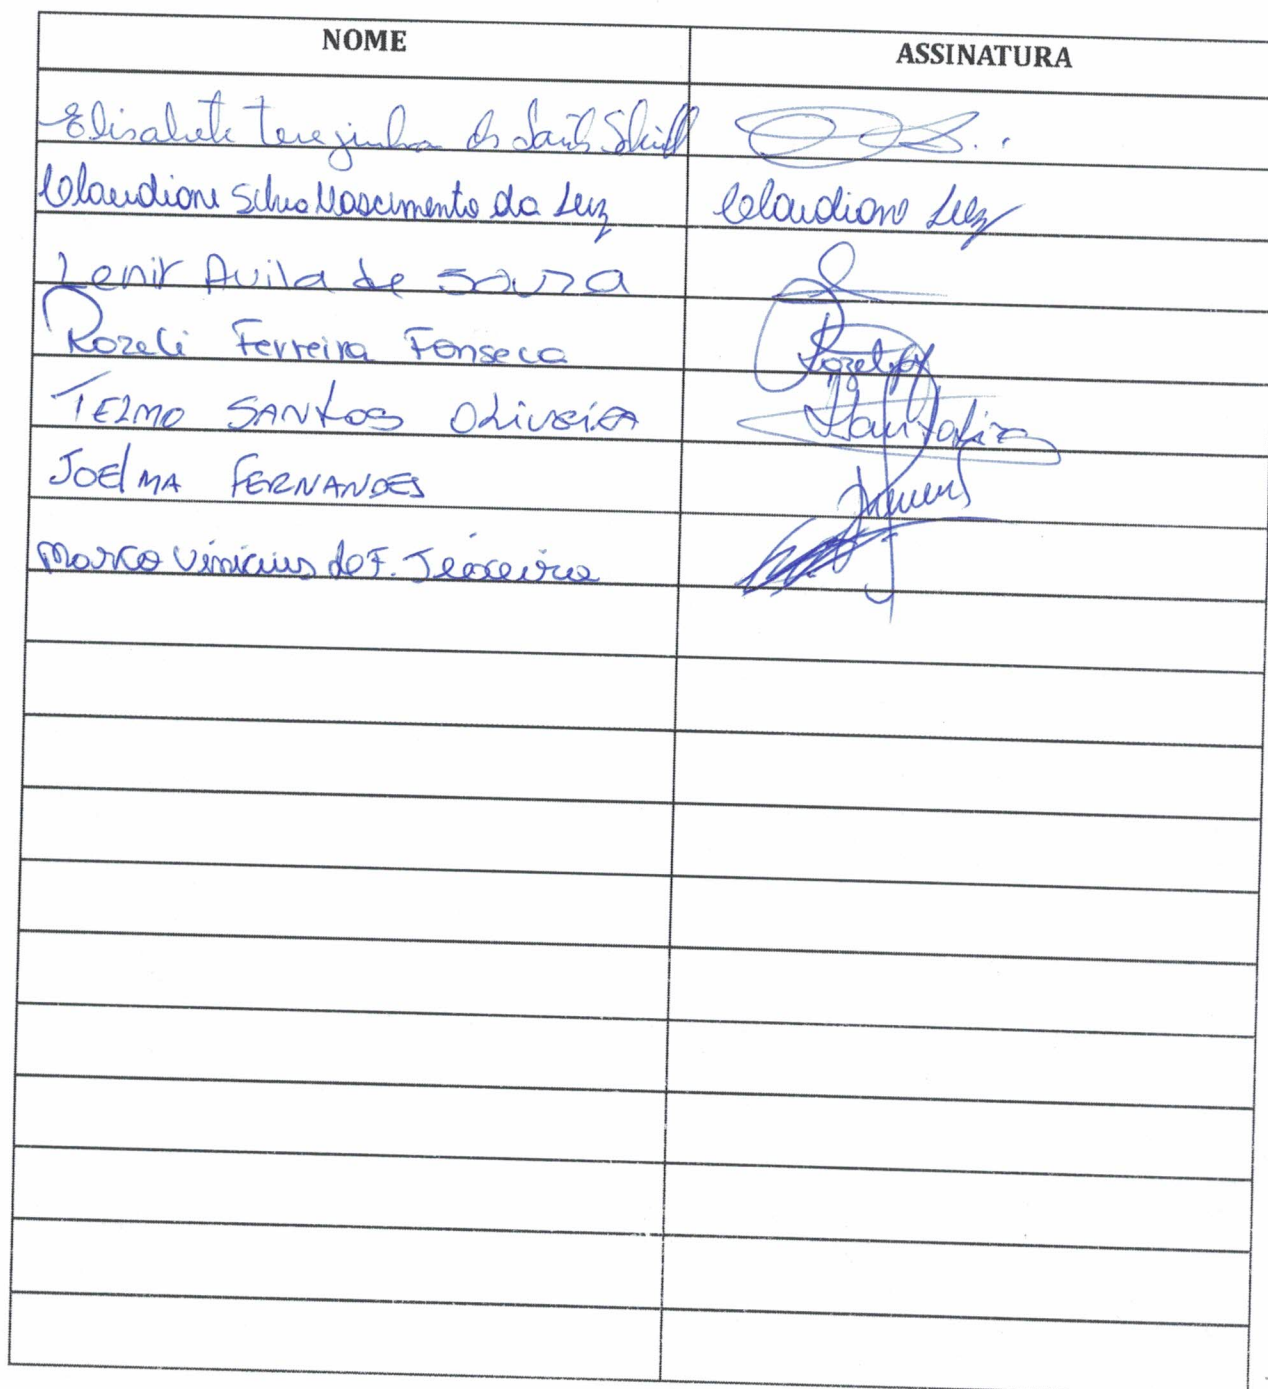 NOME ASSINATURA
Elisabete terezinha ds Santos
Claudione Silva Nascimento da Luz Claudione Luz
Lenir Avila de Souza
Rozeli Ferreira Fonseca
TELMO SANtos OLiveirA
JOElMA FERNANDES
Marco Vinicius de F. Teixeira